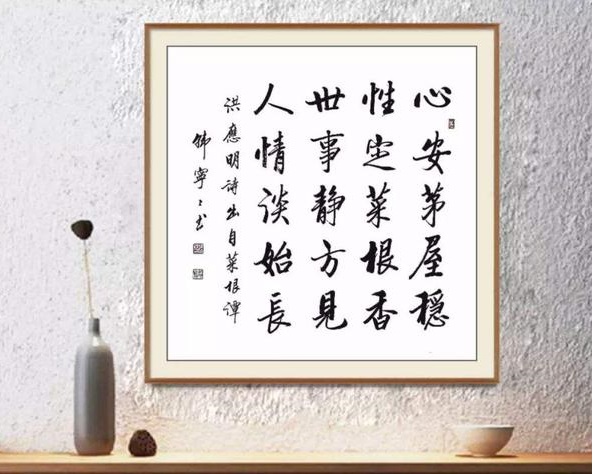 心安茅屋穩
性定菜根香
世事静方見
人情谈始長
洪應明詩出自菜根譚
韩寧〻书